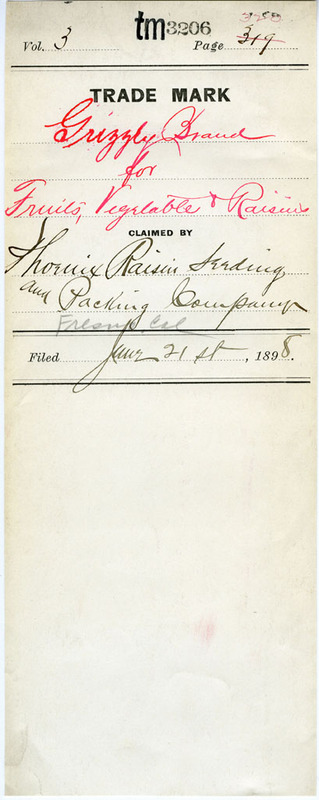 tm3206
Vol. 3 Page 319
TRADE MARK
Grizzly Brand
for
Fruits, Vegetables & Raisins
CLAIMED BY
Phoenix Raisin Seeding
and Packing Company
Fresno Cal
Filed June 21st, 1898.